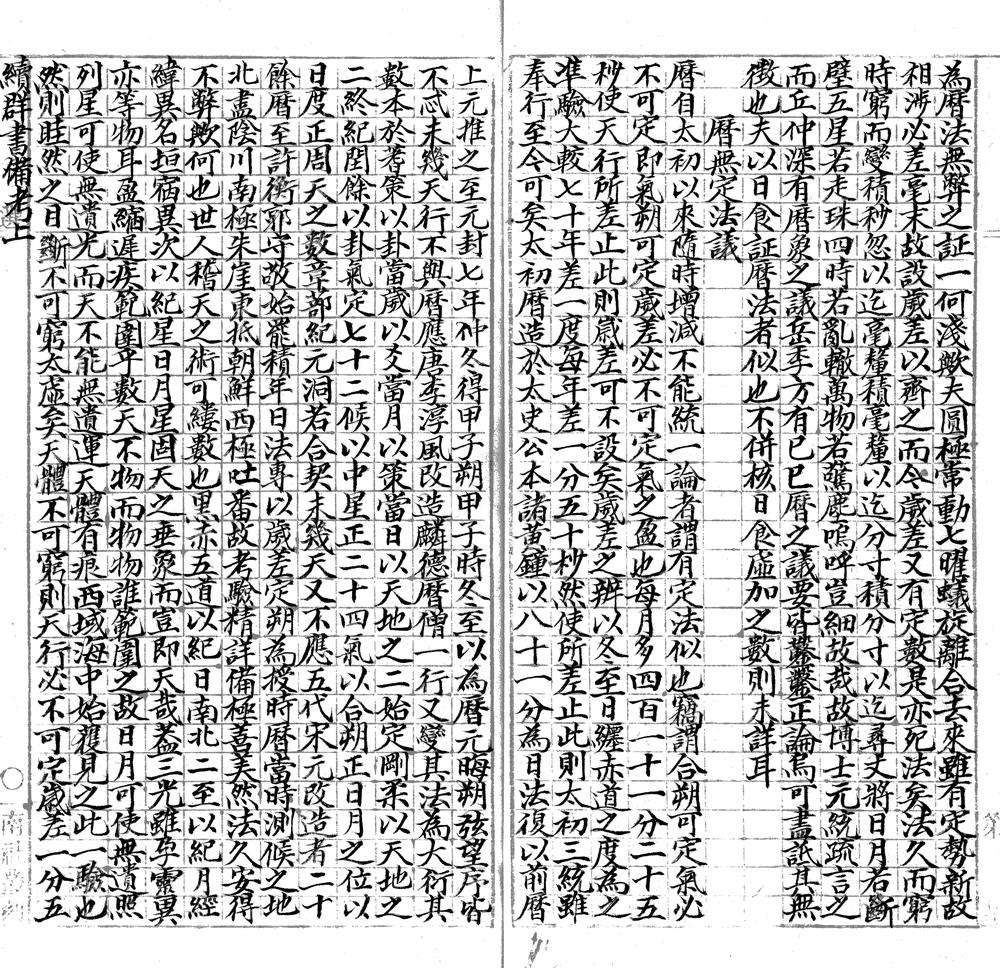 為曆法無弊之証一何淺歟夫圓極常動七曜蟻旋離合去來雖有定勢新故
相涉必差毫末故設歲差以齊之而今歲差又有定數是亦死法矣法久而窮
時窮而變積秒忽以迄毫釐積毫釐以迄分寸積分寸以迄尋丈將日月若斷
璧五星若走珠四時若亂轍萬物若驚塵嗚呼豈細故哉故博士元統疏言之
而丘仲深有曆象之議岳季方有已巳曆之議要皆鑿鑿正論烏可盡詆其無
徵也夫以日食証曆法者似也不併核日食虛加之數則未詳耳
曆無定法議
曆自太初以來隨時增減不能統一論者謂有定法似也竊謂合朔可定氣必
不可定即氣朔可定歲差必不可定氣之盈也每月多四百一十一分二十五
秒使天行所差止此則歲差可不設矣歲差之辨以冬至日纏赤道之度為之
準驗大較七十年差一度每年差一分五十秒然使所差止此則太初三統雖
奉行至今可矣太初曆造於太史公本諸黃鐘以八十一分為日法復以前曆
上元推之至元封七年仲冬得甲子朔甲子時冬至以為曆元晦朔弦望序皆
不忒未幾天行不與曆應唐李淳風改造麟德曆僧一行又變其法為大衍其
數本於蓍策以卦當歲以爻當月以策當日以天地之二始定剛柔以天地之
二終紀閏餘以卦氣定七十二候以中星正二十四氣以合朔正日月之位以
日度正周天之數章部紀元洞若合契未幾天又不應五代宋元改造者二十
餘曆至許衡郭守敬始罷積年日法專以歲差定朔為授時曆當時測候之地
北盡陰川南極朱崖東抵朝鮮西極吐番故考驗精詳備極善美然法久安得
不弊歟何也世人稽天之術可縷數也黑赤五道以紀日南北二至以紀月經
緯異名垣宿異次以紀星日月星固天之垂象而豈即天哉蓋三光雖孕靈異
亦等物耳盈縮遲疾範圍乎數天不物而物物誰範圍之故日月可使無遺照
列星可使無遺光而天不能無遺運天體有痕西域海中始獲見之此一驗也
然則眭然之日斷不可窮太虛矣天體不可窮則天行必不可定歲差一分五
續群書備考上